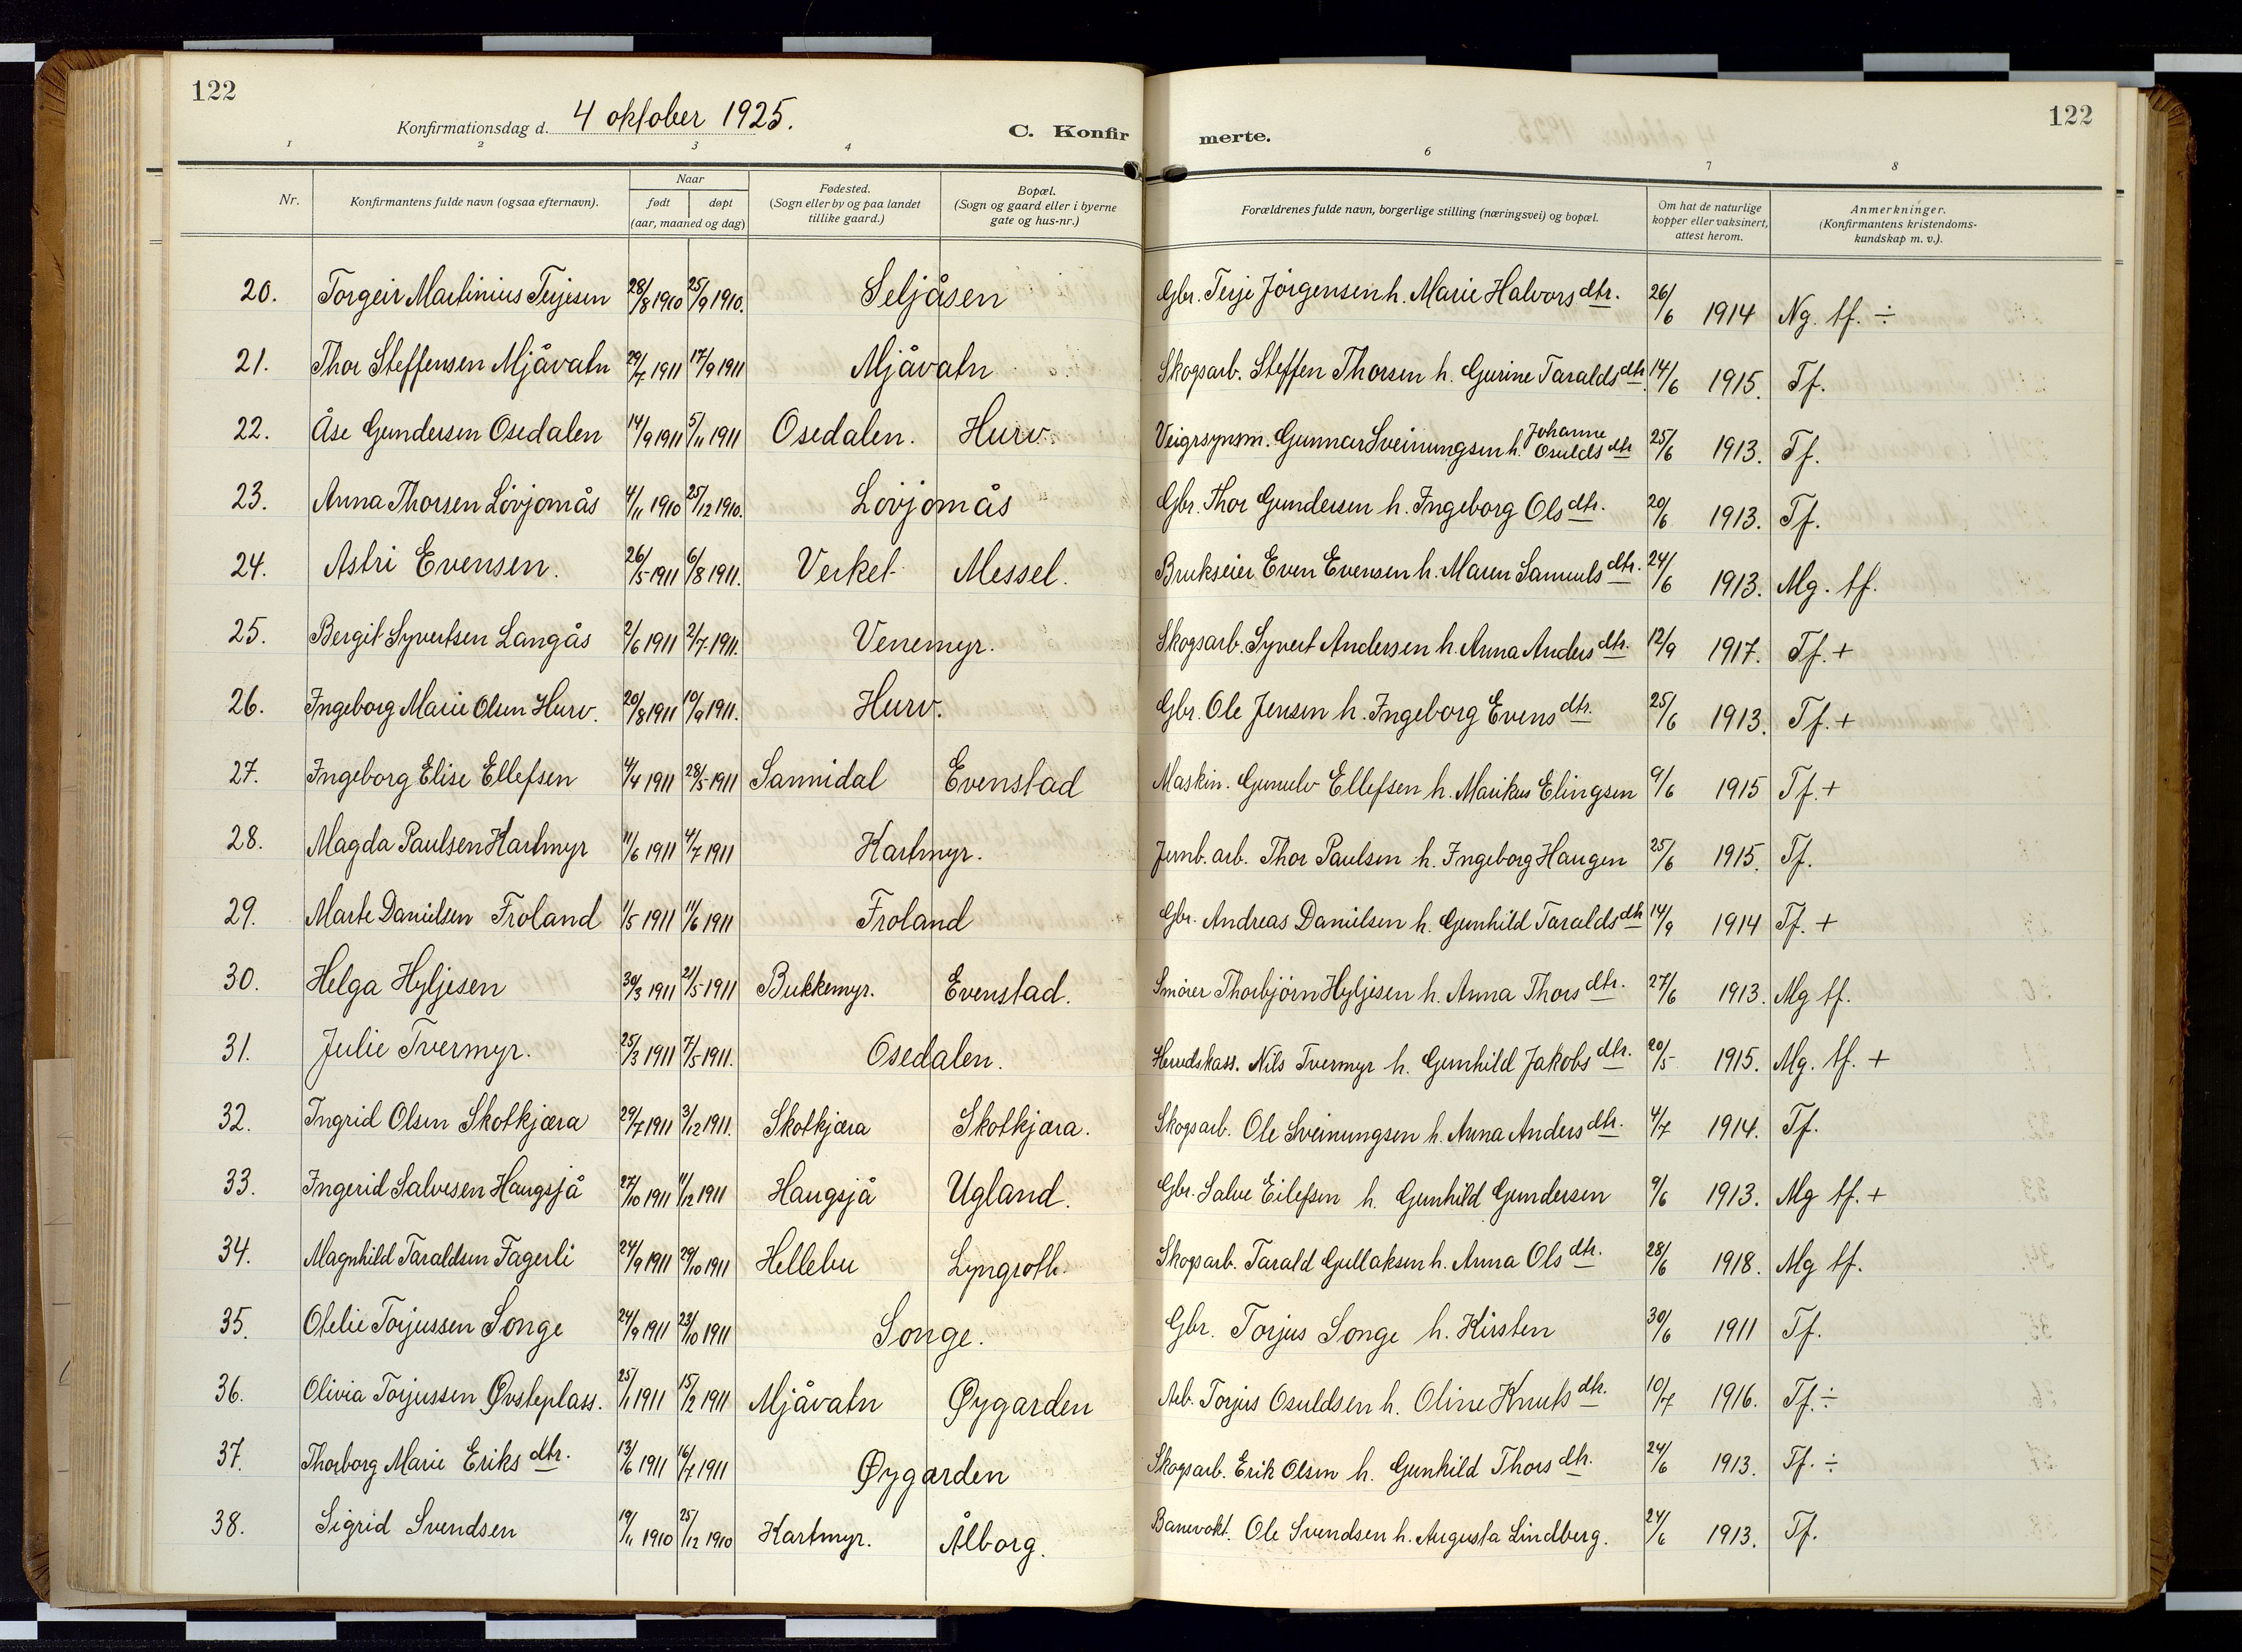 122
Konfirmationsdag d. 4 oktober 1925.
C. Konfir merte.
122
1 2 3 4 6 7 8
Nr. Konfirmantens fulde navn (ogsaa efternavn). Naar født døpt (aar, maaned og dag) Fødested. (Sogn eller by og paa landet tillike gaard.) Bopæl. (Sogn og gaard eller i byerne gate og hus-nr.) Forældrenes fulde navn, borgerlige stilling (næringsvei) og bopæl. Om hat de naturlige kopper eller vaksinert, attest herom. Anmerkninger. (Konfirmantens kristendoms-kundskap m. v.).
20. Torgeir Martinius Terjesen 28/8 1910 25/9 1910. Seljåsen Gbr. Terje Jörgensen h. Marie Halvorsdtr. 26/6 1914 Ng. tf. ÷
21. Thor Steffensen Mjåvatn 29/7 1911 17/9 1911 Mjåvatn Skogsarb. Steffen Thorsen h. Gurine Taraldsdtr. 14/6 1915. Tf.
22. Åse Gundersen Osedalen 14/9 1911 5/11 1911 Osedalen. Hurv. Veigrsynsm. Gunnar Sveinungsen h. Johanne Osuldsdtr 25/6 1913. Tf.
23. Anna Thorsen Lövjomås 4/11 1910 25/12 1910. Lövjomås Gbr. Thor Gundersen h. Ingeborg Olsdtr. 20/6 1913. Tf.
24. Astri Evensen. 26/5 1911 6/8 1911. Verket Messel. Brukseier Even Evensen h. Maren Samuelsdtr. 24/6 1913. Mg. tf.
25. Bergit Syvertsen Langås 2/6 1911 2/7 1911. Venemyr. Skogsarb. Syvert Andersen h. Anna Andersdtr. 12/9 1917. Tf. +
26. Ingeborg Marie Olsen Hurv. 20/8 1911 10/9 1911. Hurv. Gbr. Ole Jensen h. Ingeborg Evensdtr. 25/6 1913. Tf. +
27. Ingeborg Elise Ellefsen 4/4 1911 28/5 1911 Sannidal Evenstad Maskin. Gunulv Ellefsen h. Marikus Elingsen 9/6 1915 Tf. +
28. Magda Paulsen Hartmyr 11/6 1911 4/7 1911 Hartmyr. Jernb. arb. Thor Paulsen h. Ingeborg Haugen 25/6 1915. Tf.
29. Marte Danielsen Froland 1/5 1911 11/6 1911 Froland Gbr. Andreas Danielsen h. Gunhild Taraldsdtr 14/9 1914 Tf. +
30. Helga Hyljesen 30/3 1911 21/5 1911 Bukkemyr. Evenstad. Smörer Thorbjörn Hyljesen h. Anna Thorsdtr. 27/6 1913. Mg tf.
31. Julie Tvermyr. 25/3 1911 7/5 1911. Osedalen. Herredskass. Nils Tvermyr h. Gunhild Jakobsdtr. 20/5 1915. Mg. tf. +
32. Ingrid Olsen Skotkjæra 29/7 1911 3/12 1911. Skotkjæra Skotkjæra. Skogsarb. Ole Sveinungsen h. Anna Andersdtr. 4/7 1914. Tf.
33. Ingerid Salvesen Haugsjå 27/10 1911 11/12 1911 Haugsjå Ugland. Gbr. Salve Eilefsen h. Gunhild Gundersen 9/6 1913. Mg tf. +
34. Magnhild Taraldsen Fagerli 24/9 1911 29/10 1911 Hellebu Lyngroth. Skogsarb. Tarald Gullaksen h. Anna Olsdtr. 28/6 1918. Mg tf.
35. Otelie Torjussen Songe 24/9 1911 23/10 1911 Songe. Gbr. Torjus Songe h. Kirsten 30/6 1911 Tf.
36. Olivia Torjussen Øvsteplass. 25/1 1911 15/2 1911 Mjåvatn Øygarden Arb. Torjus Osuldsen h. Oline Knutsdtr. 10/7 1916. Tf. ÷
37. Thorborg Marie Eriksdtr. 13/6 1911 16/7 1911 Øygarden Skogsarb. Erik Olsen h. Gunhild Thorsdtr. 24/6 1913. Tf. ÷
38. Sigrid Svendsen 19/11 1910 25/12 1910 Hartmyr. Ålborg. Banevokt. Ole Svendsen h. Augusta Lindberg. 24/6 1913. Tf.